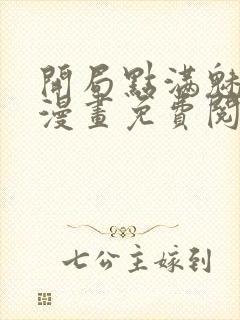 開局點滿魅
漫畫免費閱
七公主嫁到